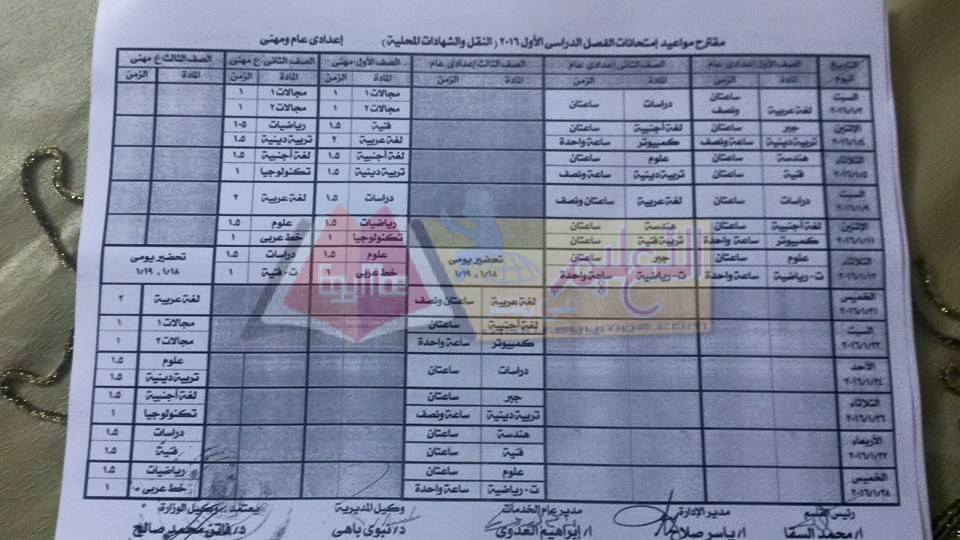 مقترح مواعيد إمتحانات الفصل الدراسى الأول ٢٠١٦ (النقل والشهادات المحلية) إعدادى عام ومهنى
التاريخ اليوم الصف الأول إعدادى عام الصف الثانى إعدادى عام الصف الثالث إعدادى عام الصف الأول مهنى الصف الثانى ع مهنى الصف الثالث ع مهنى
المادة الزمن المادة الزمن المادة الزمن المادة الزمن المادة الزمن المادة الزمن
السبت ٢٠١٦/١/٢ لغة عربية ساعتان ونصف دراسات ساعتان مجالات ١ ١ مجالات ١ ١
مجالات ٢ ١ مجالات ٢ ١
الإثنين ٢٠١٦/١/٤ جبر ساعتان لغة أجنبية ساعتان فنية ١.٥ رياضيات ١.٥
تربية دينية ساعة ونصف كمبيوتر ساعة واحدة لغة عربية ٢ تربية دينية ١.٥
الثلاثاء ٢٠١٦/١/٥ هندسة ساعتان علوم ساعتان لغة أجنبية ١.٥ لغة أجنبية ١.٥
فنية ساعتان تربية دينية ساعة ونصف تربية دينية ١.٥ تكنولوجيا ١
السبت ٢٠١٦/١/٩ دراسات ساعتان لغة عربية ساعتان ونصف دراسات ١.٥ لغة عربية ٢
الإثنين ٢٠١٦/١/١١ لغة أجنبية ساعتان هندسة ساعتان رياضيات ١.٥ علوم ١.٥
كمبيوتر ساعة واحدة تربية فنية ساعتان تكنولوجيا ١ خط عربى ١
الثلاثاء ٢٠١٦/١/١٢ علوم ساعتان جبر ساعتان تحضير يومى ١/١٨ ، ١/١٩ علوم ١.٥ دراسات ١.٥ تحضير يومى ١/١٨ ، ١/١٩
ت٠ رياضية ساعة واحدة ت٠ رياضية ساعة واحدة خط عربى ١ ت٠ فنية ١
الخميس ٢٠١٦/١/٢١ لغة عربية ساعتان ونصف لغة عربية ٢
السبت ٢٠١٦/١/٢٣ لغة أجنبية ساعتان مجالات ١ ١
كمبيوتر ساعة واحدة مجالات ٢ ١
الأحد ٢٠١٦/١/٢٤ دراسات ساعتان علوم ١.٥
تربية دينية ١.٥
الثلاثاء ٢٠١٦/١/٢٦ جبر ساعتان لغة أجنبية ١.٥
تربية دينية ساعة ونصف تكنولوجيا ١
الأربعاء ٢٠١٦/١/٢٧ هندسة ساعتان دراسات ١.٥
فنية ساعتان فنية ١.٥
الخميس ٢٠١٦/١/٢٨ علوم ساعتان رياضيات ١.٥
ت٠ رياضية ساعة واحدة خط عربى ١
رئيس القسم مدير الإدارة مدير عام الخدمات وكيل المديرية يعتمد، وكيل الوزارة
أ/ محمد السقا أ/ ياسر صلاح أ/ إبراهيم العدوى د/ نبوى باهى د/ فاتن محمد صالح